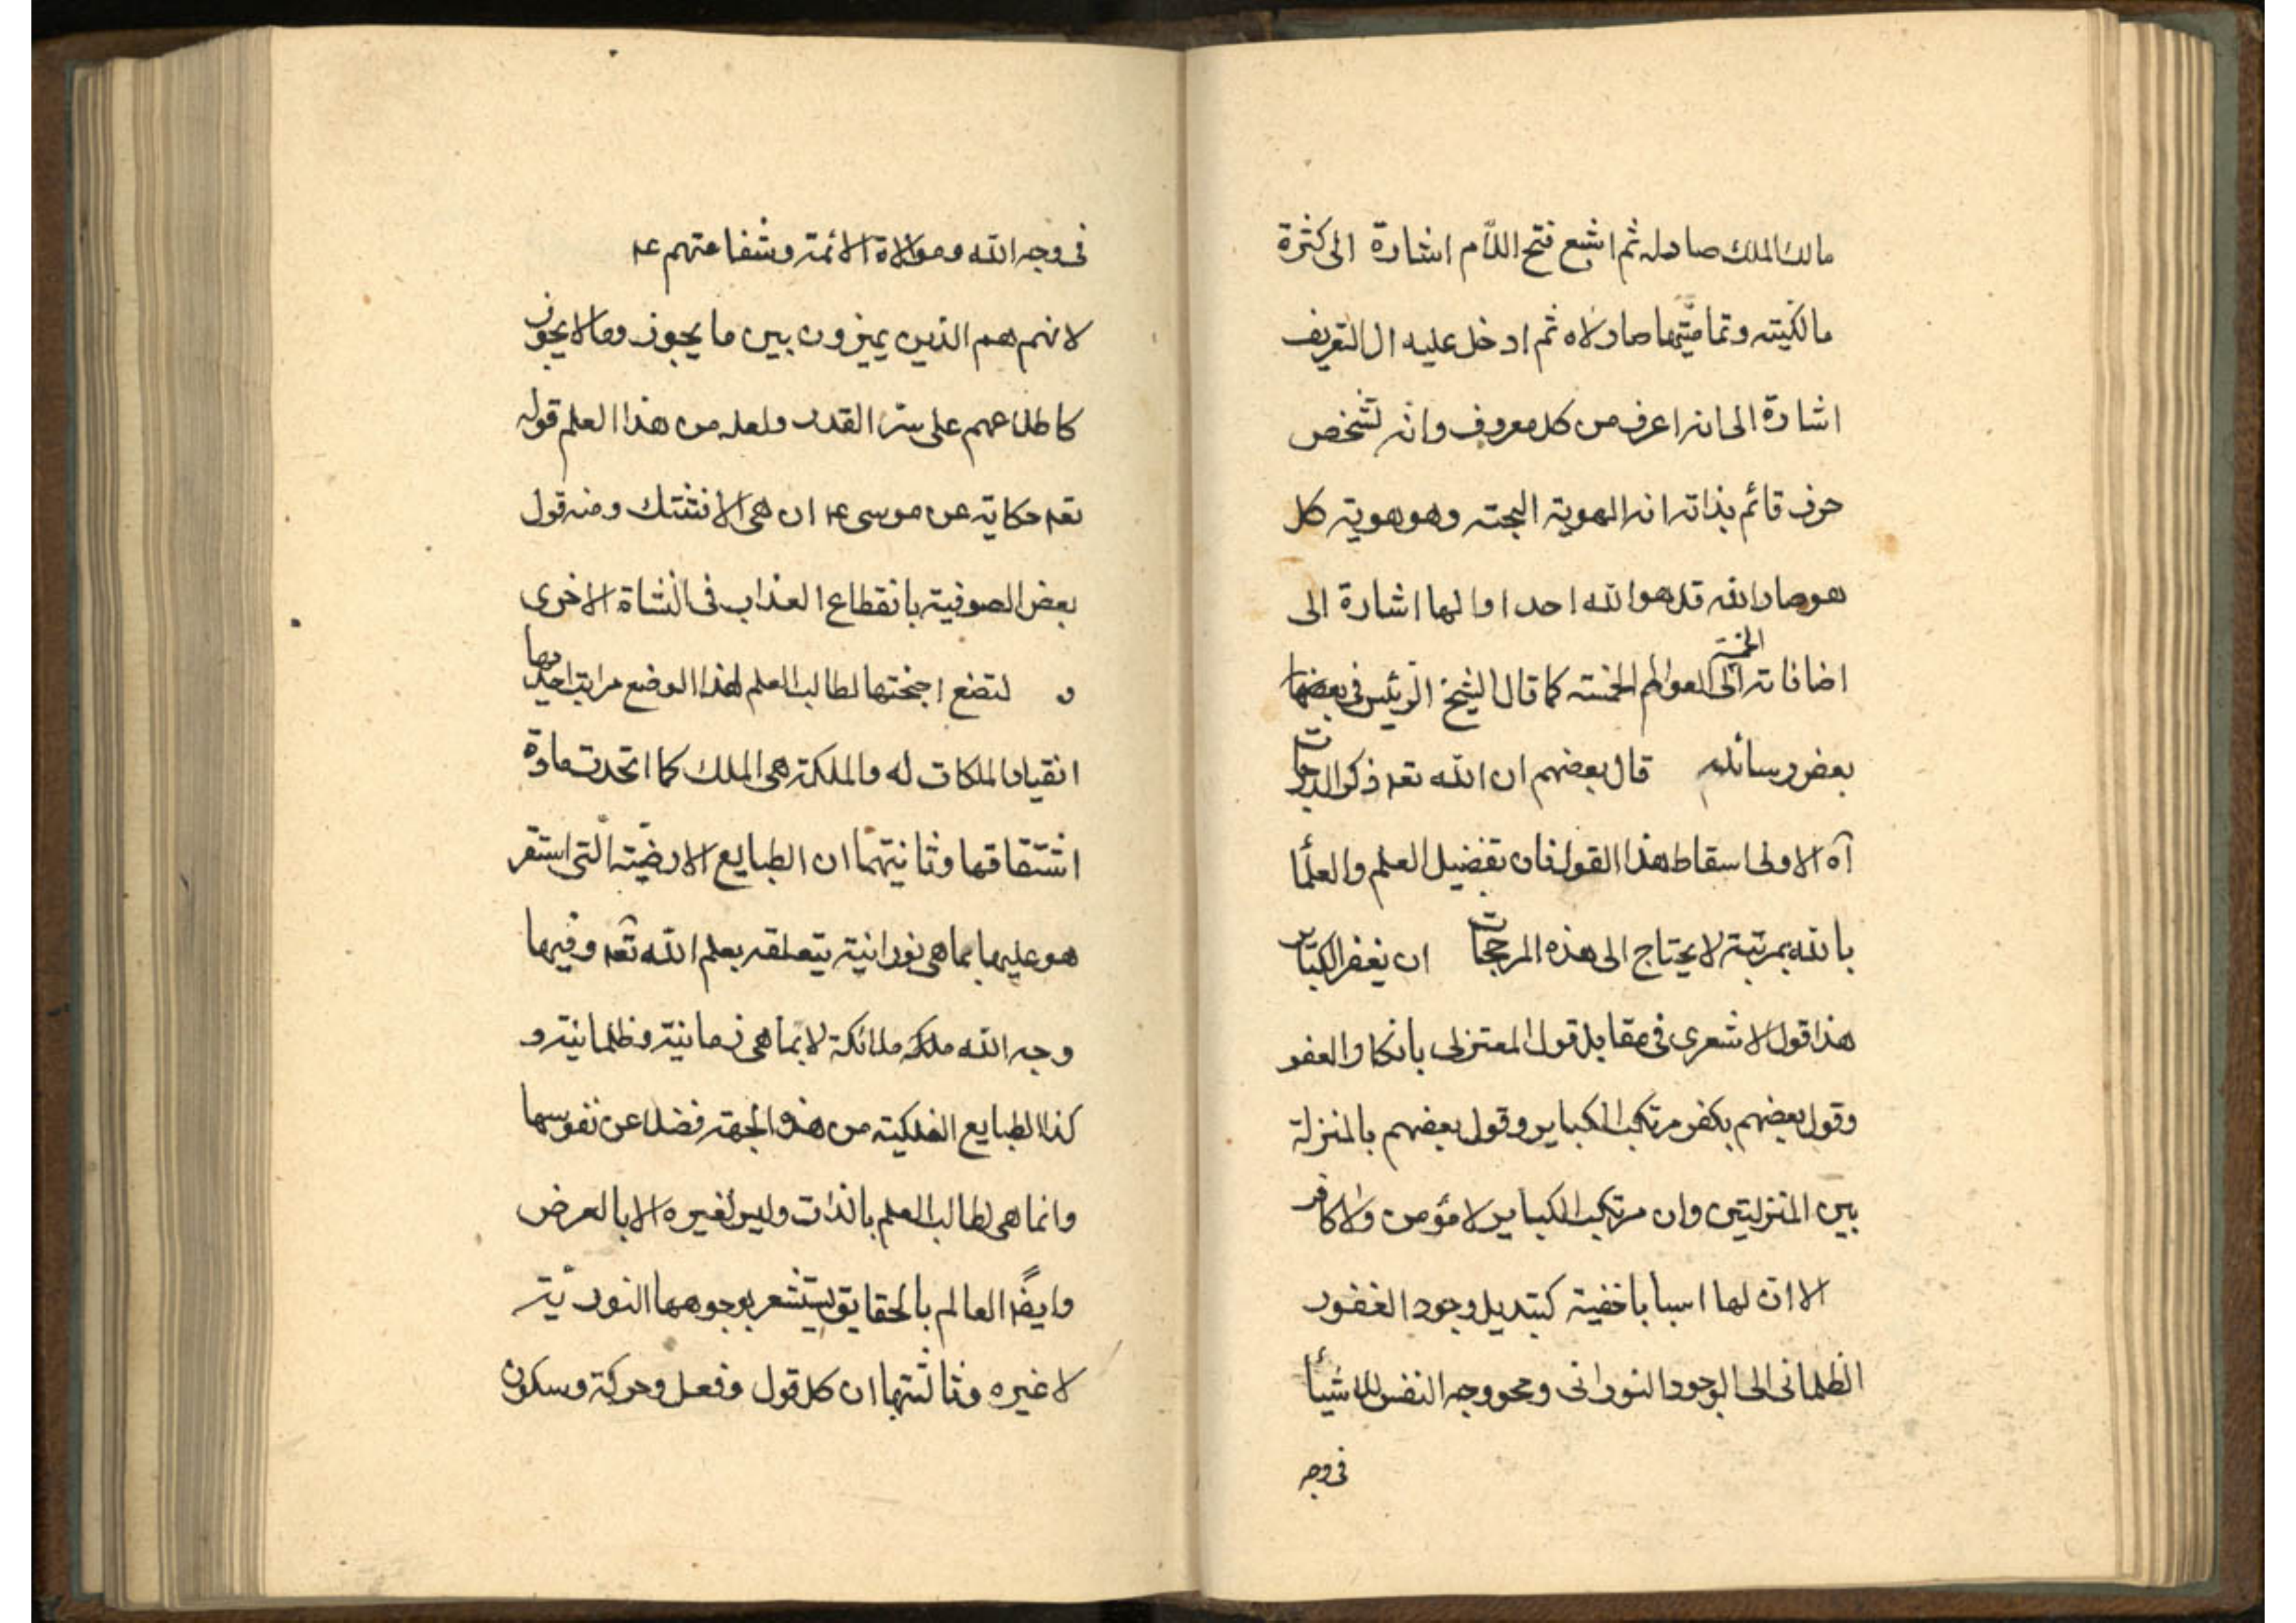 مالك الملك صار له ثم اشبع فتح اللّام اشارة الى كثرة
مالكيته وتماميّتها صار لاه ثم ادخل عليه ال التعريف
اشارة الى انه اعرف من كل معروف وانه لتشخص
حرف قائم بذاته انه الهوية البحتة وهو هوية كل
هو صار الله قل هو الله احد او الها اشارة الى
اضافاته الى العوالم الخمسة كما قال الشيخ الرئيس فى
بعض رسائله قال بعضهم ان الله تعه ذكر الدرجات
آه الاولى اسقاط هذا القول فان تفضيل العلم والعلمأ
بالله بمرتبة لا يحتاج الى هذه المرجحات ان يغفر الكبائر
هذا قول الاشعرى فى مقابل قول المعتزلى بانكار العفو
وقول بعضهم بكفر مرتكب الكباير وقول بعضهم بالمنزلة
بين المنزلتين وان مرتكب الكباير لا مؤمن ولا كافر
الا ان لها اسبابا خفية كتبديل وجود الغفور
الظلمانى الى الوجود النورانى ومحو وجه النفس للاشيأ
فى وجه
فى وجه الله وموالاة الائمة وشفاعتهم عه
لانهم هم الذين يميزون بين ما يجوز وما لا يجوز
كاطلاعهم على سرّ القدر ولعله من هذا العلم قوله
تعه حكاية عن موسى عه ان هى الا فتنتك ومنه قول
بعض الصوفية بانقطاع العذاب فى النشاة الاخرى
و لتضع اجنحتها لطالب العلم لهذا الوضع مراتب احديها
انقياد الملكات له والملكة هى الملك كما اتحدت مادة
اشتقاقها وثانيتها ان الطبايع الارضيّة الّتى استقر
هو عليها بما هى نورانية يتعلقه بعلم الله تعه وفيها
وجه الله ملكه ملائكة لا بما هى زمانية وظلمانية و
كذا الطبايع الفلكية من هذه الجهة فضلا عن نفوسها
وانما هى لطالب العلم بالذات وليس لغيره الا بالعرض
وايضًا العالم بالحقايق يستشعر بوجوهها النوريّة
لا غيره وثالثتها ان كل قول وفعل وحركة وسكون